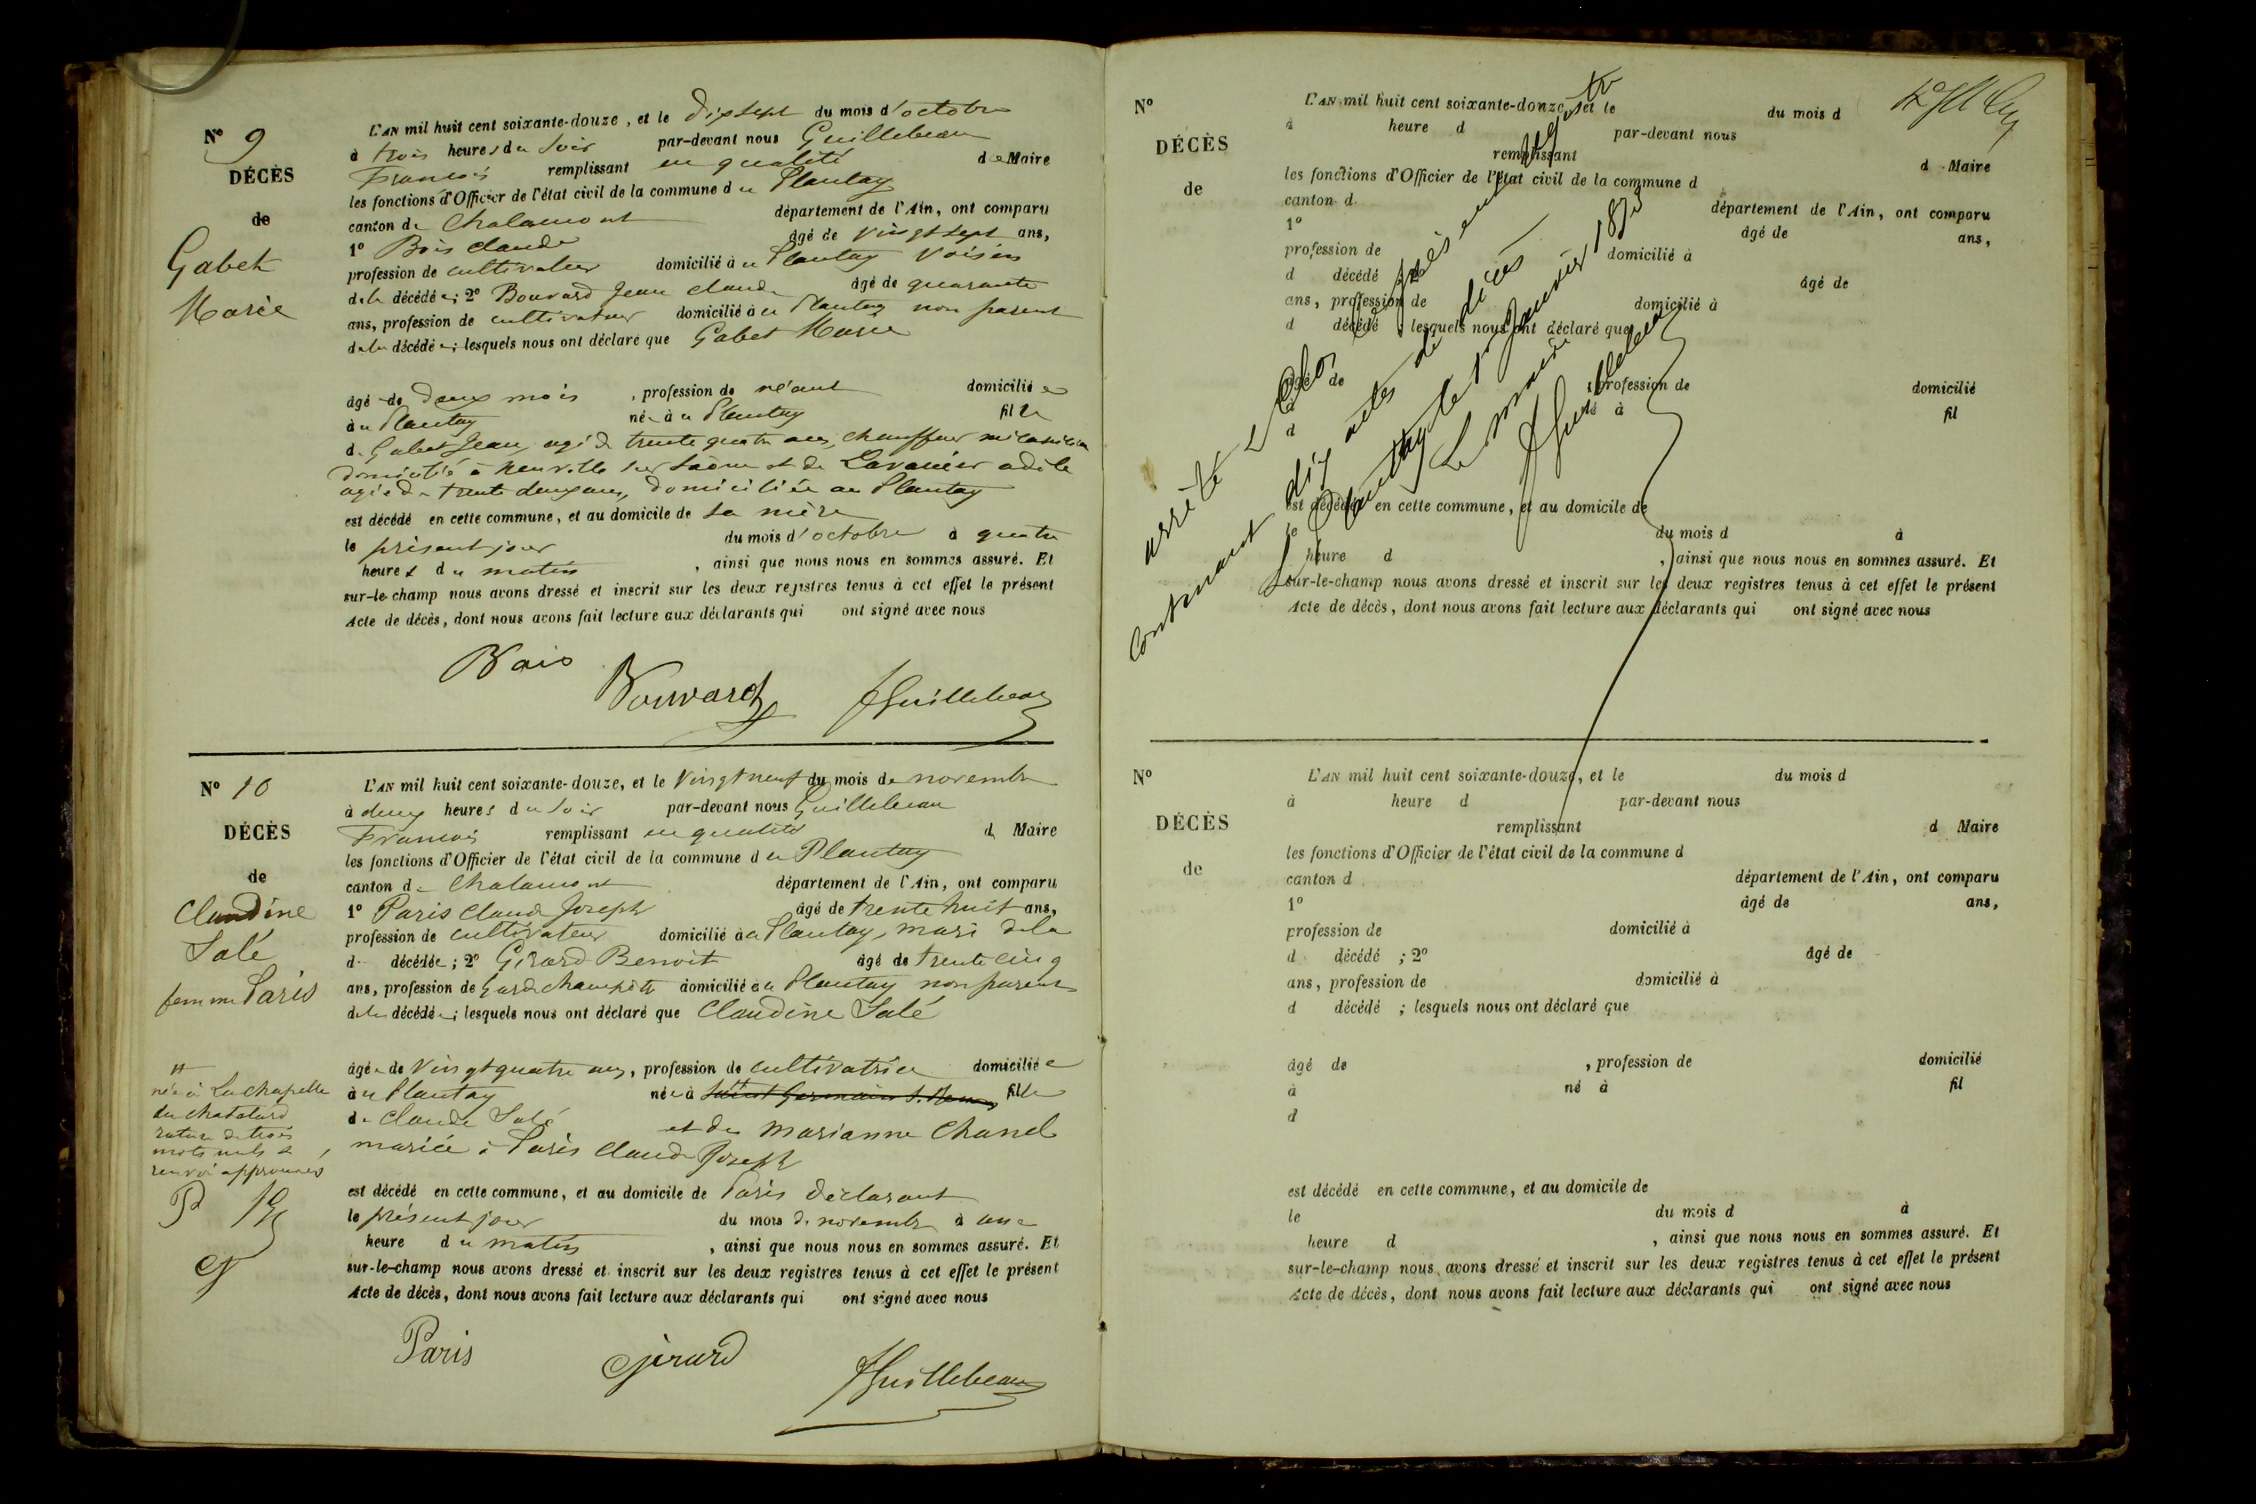 N° 9
DÉCÈS
de
Gabet
Marie
L'AN mil huit cent soixante-douze, et le dix sept du mois d'octobre
à trois heures du soir par-devant nous Guillebeau
François remplissant en qualité de Maire
les fonctions d'Officier de l'état civil de la commune du Plantay
canton de Chalamont département de l'Ain, ont comparu
1° Bois Claude âgé de vingt sept ans,
profession de cultivateur domicilié au Plantay voisin
de la décédée; 2° Bouvard Jean Claude âgé de quarante
ans, profession de cultivateur domicilié au Plantay non parent
de la décédée; lesquels nous ont déclaré que Gabet Marie
âgé de deux mois, profession de néant domiciliée
au Plantay née au Plantay fille
de Gabet Jean, agé de trente quatre ans, chauffeur mécanicien
domicilié à Neuville sur Saône et de Lavanier adèle
agée de trente deux ans, domiciliée au Plantay
est décédé en cette commune, et au domicile de sa mère
le présent jour du mois d'octobre à quatre
heures du matin, ainsi que nous nous en sommes assuré. Et
sur-le-champ nous avons dressé et inscrit sur les deux registres tenus à cet effet le présent
Acte de décès, dont nous avons fait lecture aux déclarants qui ont signé avec nous
Bois
Bouvard
Guillebeau
N° 10
DÉCÈS
de
Claudine
Salé
femme Paris
L'AN mil huit cent soixante-douze, et le vingt neuf du mois de novembre
à deux heures du soir par-devant nous Guillebeau
François remplissant en qualité d Maire
les fonctions d'Officier de l'état civil de la commune du Plantay
canton de Chalamont département de l'Ain, ont comparu
1° Paris Claude Joseph âgé de trente huit ans,
profession de cultivateur domicilié au Plantay, mari de la
d décédée; 2° Girard Benoit âgé de trente cinq
ans, profession de Garde champêtre domicilié au Plantay non parent
de la décédée; lesquels nous ont déclaré que Claudine Salé
âgée de vingt quatre ans, profession de cultivatrice domiciliée
au Plantay née à Saint Germain fille
de Claude Salé et de Marianne Chanel
mariée à Paris Claude Joseph
née à La chapelle
du chatelard
rature de trois
mots nuls et
renvoi approuvés
est décédé en cette commune, et au domicile de Paris déclarant
le présent jour du mois de novembre à une
heure du matin, ainsi que nous nous en sommes assuré. Et
sur-le-champ nous avons dressé et inscrit sur les deux registres tenus à cet effet le présent
Acte de décès, dont nous avons fait lecture aux déclarants qui ont signé avec nous
Paris
Girard
Guillebeau
N°
DÉCÈS
de
L'AN mil huit cent soixante-douze, et le du mois d
à heure d par-devant nous
remplissant d Maire
les fonctions d'Officier de l'état civil de la commune d
canton d département de l'Ain, ont comparu
1° âgé de ans,
profession de domicilié à
d décédé âgé de
ans, profession de domicilié à
d décédé; lesquels nous ont déclaré que
âgé de, profession de domicilié
né à fil
d
est décédé en cette commune, et au domicile de
du mois d à
heure d, ainsi que nous nous en sommes assuré. Et
sur-le-champ nous avons dressé et inscrit sur les deux registres tenus à cet effet le présent
Acte de décès, dont nous avons fait lecture aux déclarants qui ont signé avec nous
arrêté et clos le
contenant dix actes de décès
Le Plantay le 1er Janvier 1873
Le maire
Guillebeau
N°
DÉCÈS
de
L'AN mil huit cent soixante-douze, et le du mois d
à heure d par-devant nous
remplissant d Maire
les fonctions d'Officier de l'état civil de la commune d
canton d département de l'Ain, ont comparu
1° âgé de ans,
profession de domicilié à
d décédé; 2° âgé de
ans, profession de domicilié à
d décédé; lesquels nous ont déclaré que
âgé de, profession de domicilié
à né à fil
d
est décédé en cette commune, et au domicile de
le du mois d à
heure d, ainsi que nous nous en sommes assuré. Et
sur-le-champ nous avons dressé et inscrit sur les deux registres tenus à cet effet le présent
Acte de décès, dont nous avons fait lecture aux déclarants qui ont signé avec nous